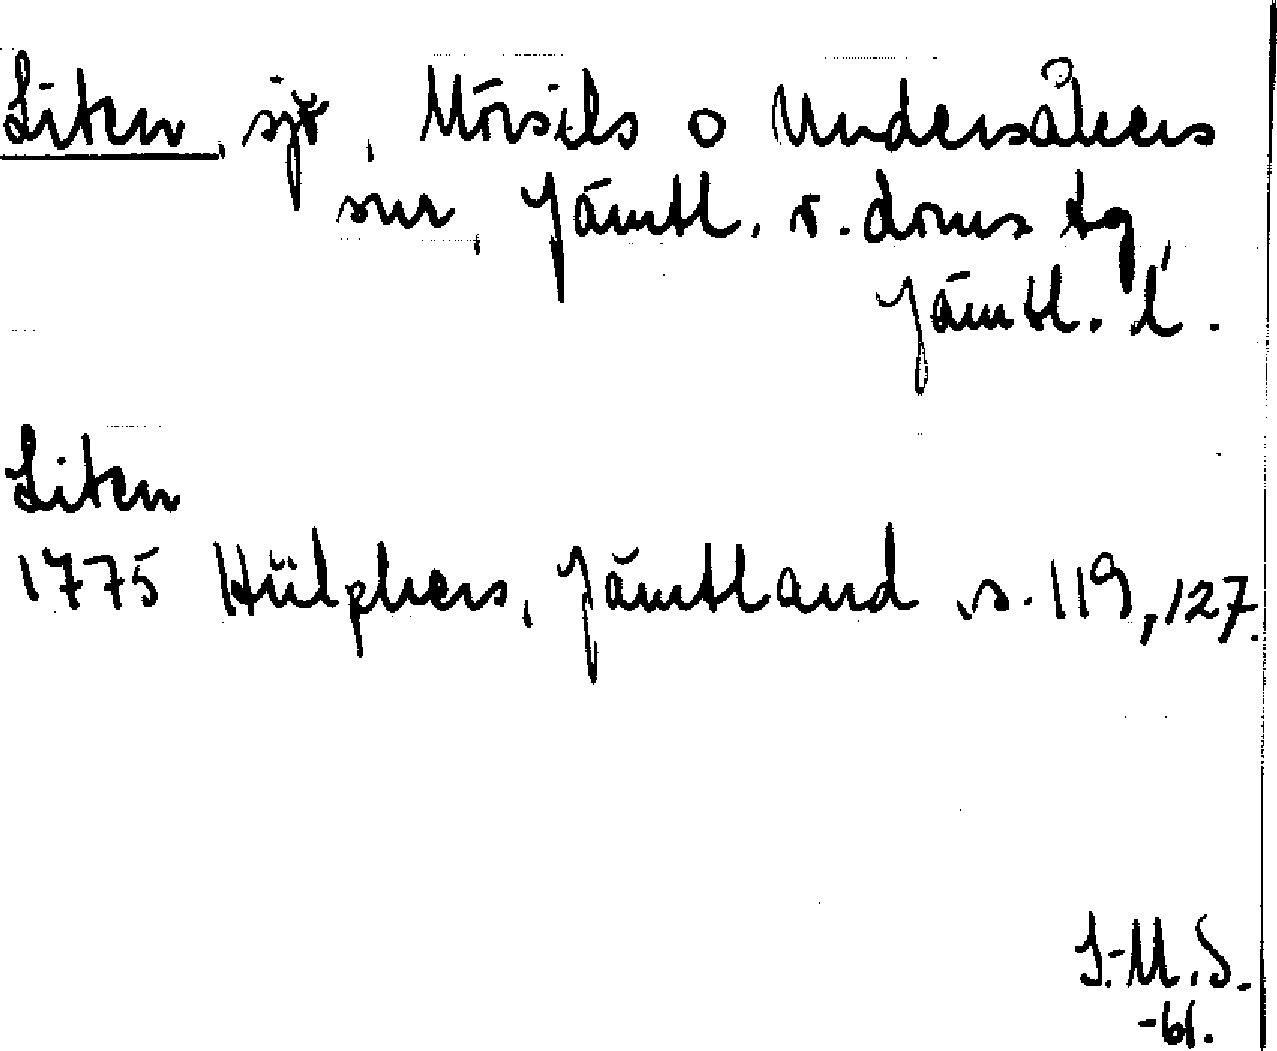 Liten, sjö, Mörsils o Undersåkers
snr, Jämtl. v. doms tg,
Jämtl. l.
Liten
1775 Hülphers, Jämtland s. 119, 127.
I.-M.S.
-61.